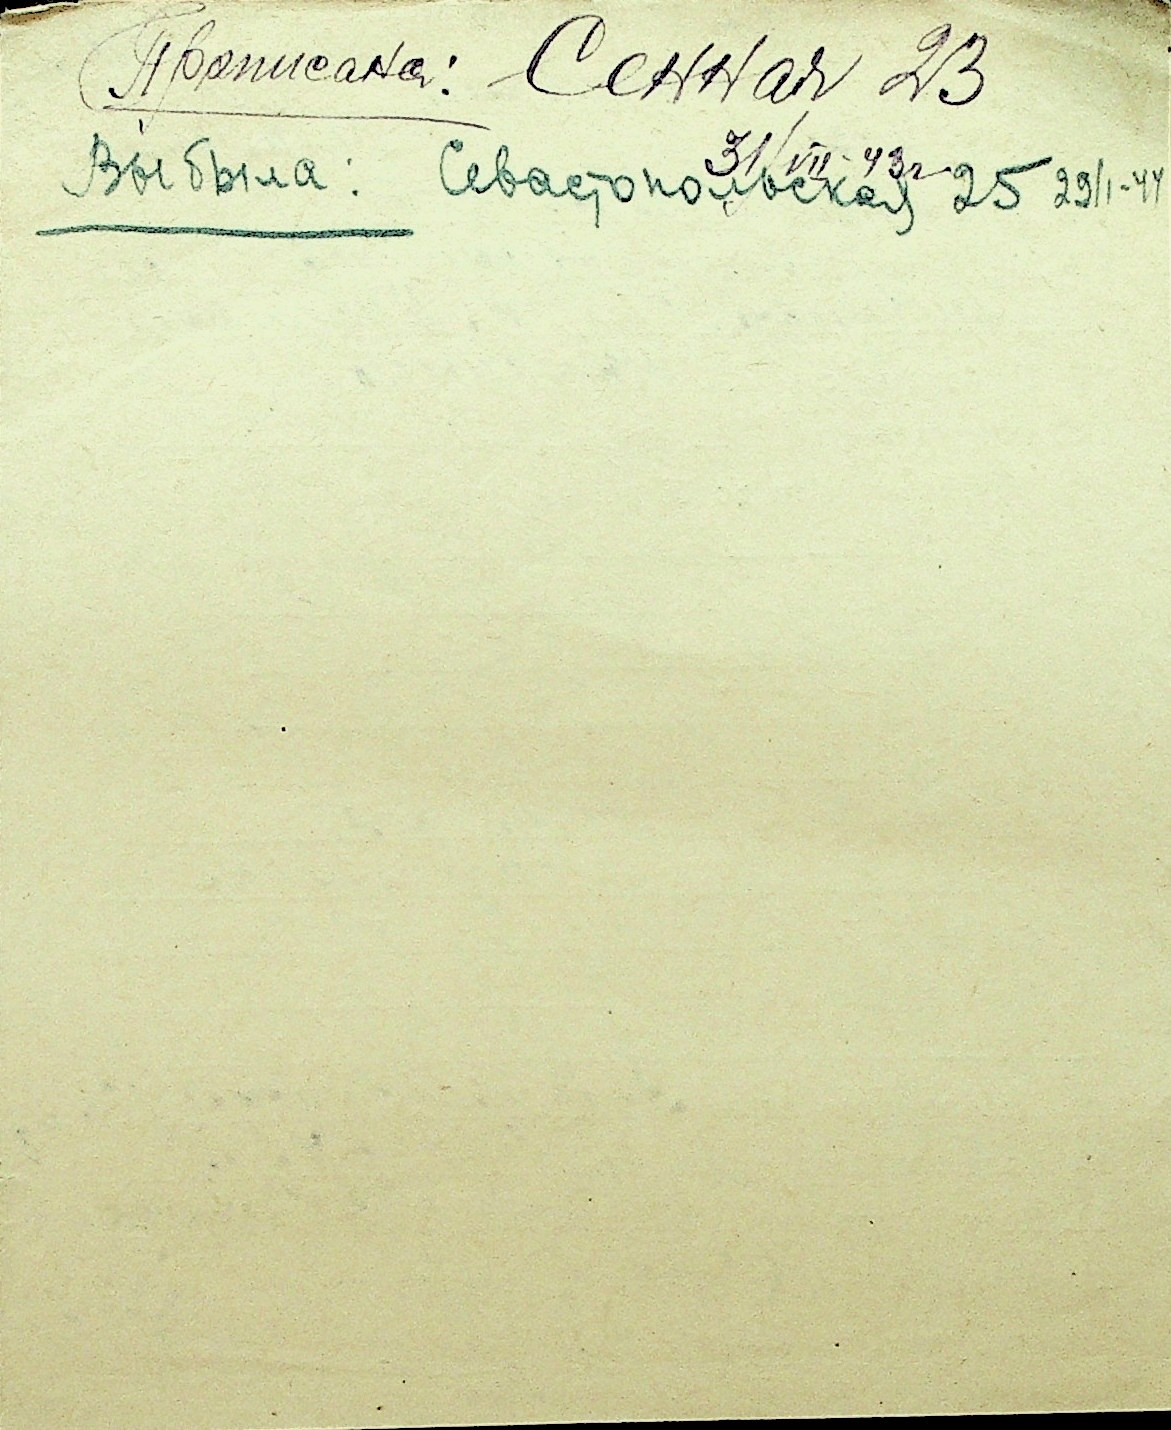 Прописана: Сенная 23
31/VII-43г
Выбыла: Севастопольская 25 29/I-44